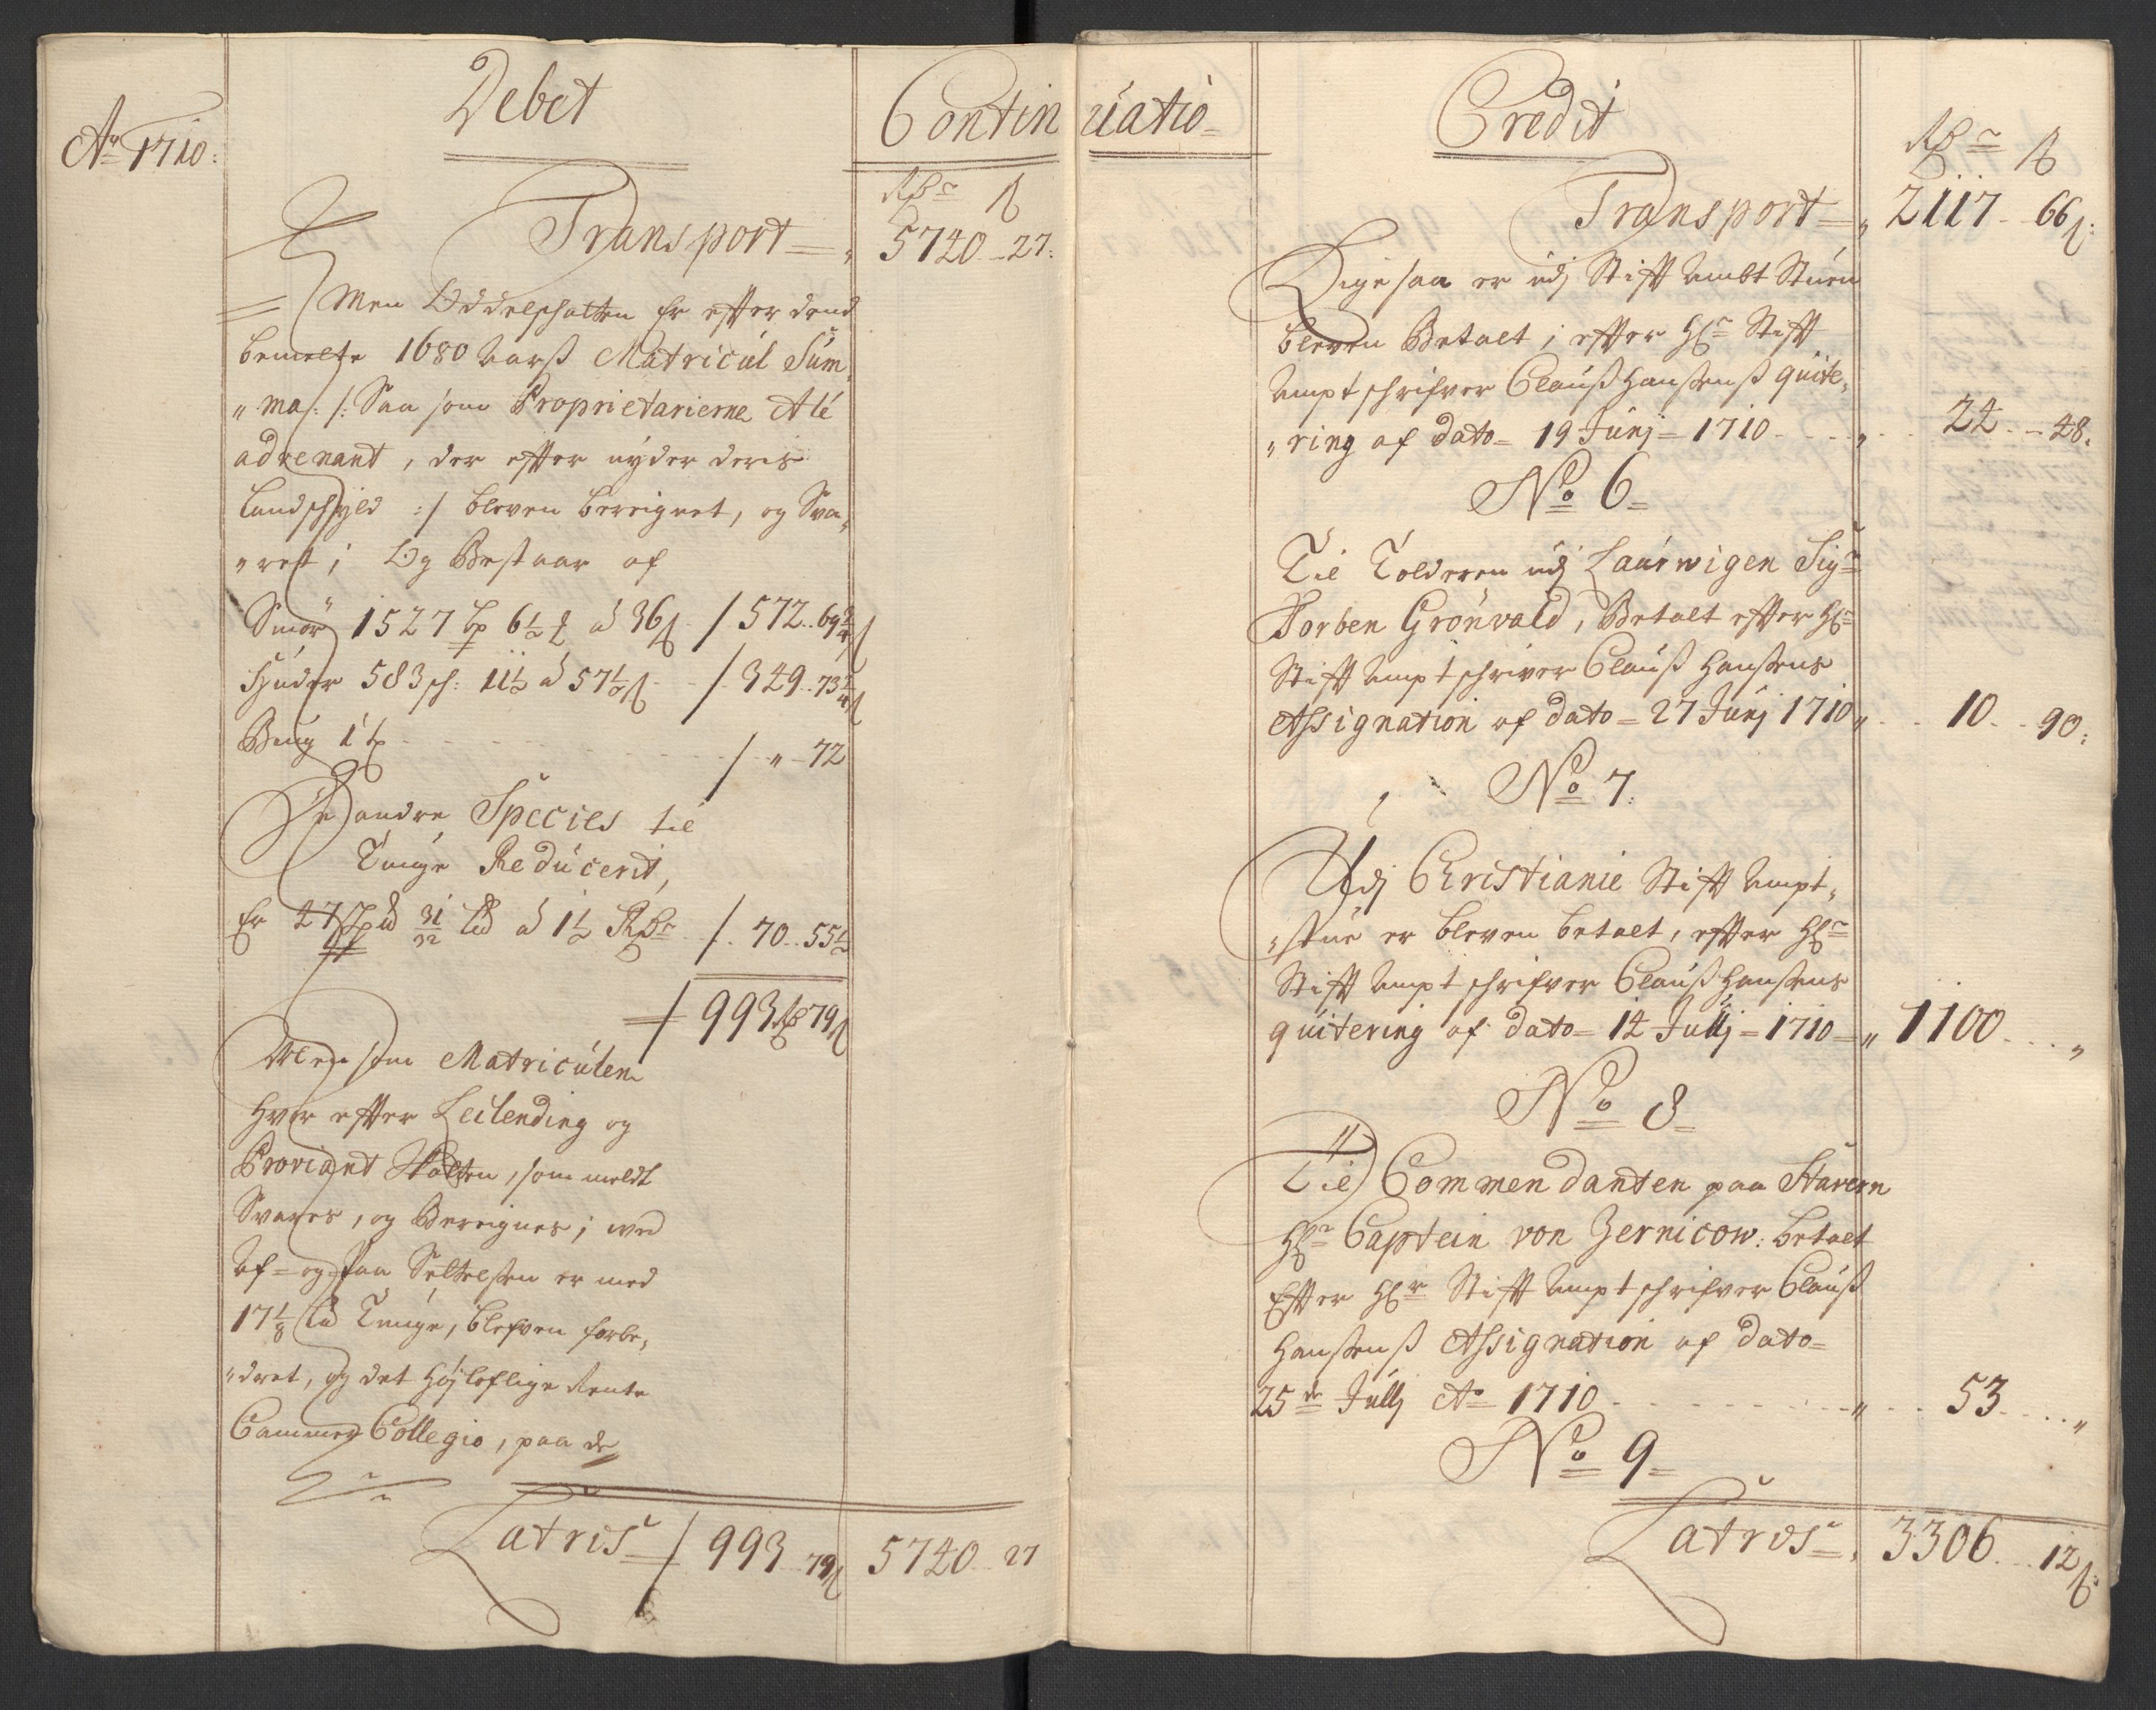 Ao 1710:
Debet
Continuatio
Rdr ß
Transport 5740 27:
Men Oddelschatten Er efter dend
bemelte 1680 Aarß Matricul Sum¸
„ma /: Saa som Proprietarierne Alé
adxenant, der efter nyder deris
Landschyld :/ bleven bereignet, og Sva¸
„ret; Og Bestaar af
Smör 1527 bp 6½ ℔ a 36ß / 572..69¾ß
Hûder 583 sch: 11½ a 57½ß / 349..73¼ß
Baug 1 bp / „ 72
De andre Species til
Tunge Reducerit,
Er 47 31/32 a 1½ Rdr / 70..55½
/ 993 Rd 79ß
Men som Matriculen
hvor efter Leilending og
Proviant Skatten, som meldt
Svares, og Bereignes; ved
Af= og Paa Settelsen er med
17⅛ Tunge, blefven forbe¸
„dret, og det Højloflige Rente
Cammer Collegio, paa de
Latris / 993 79ß 5740 27
Credit
Rdr ß
Transport „ 2117 66ß:
Lige saa er udj Stift Ambt Stuen
bleven Betalt; efter Hr Stift
Ampt schrifver Clauß Hanßenß quite¸
„ring af dato 19 Junj 1710 „ 24 48.
No 6
Til Tolderen udj Laurwigen Sigr
Torben Grönvald, Betalt efter Hr
Stift Ampt schriver Clauß Hanßens
Assignation af dato 27 Junj 1710 „ 10 90:
No 7:
Udj Christianie Stift Ampt¸
„stue er bleven betalt, efter Hr
Stift Ampt schrifver Clauß Hanßens
quitering af dato 14 Julij 1710 „ 1100 „
No 8
Til Commendanten paa Stavern
Hr Captein von Zernicow: betalt
Efter Hr Stift Ampt schrifver Clauß
Hanßenß Assignation af dato
25de Julj Ao 1710 „ 53 „
No 9
Latrds 3306 12ß: